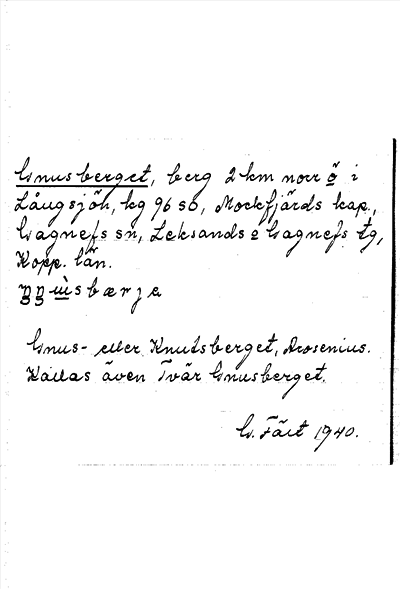 Gnusberget, berg 2 km norr ö i
Långsjön, kg 96 so, Mockfjärds kap.,
Gagnefs sn, Leksands o Gagnefs tg,
Kopp. län.
bærje
Gnus- eller Knutsberget, Arosenius.
Kallas även Tvär Gnusberget.
G. Fält 1940.